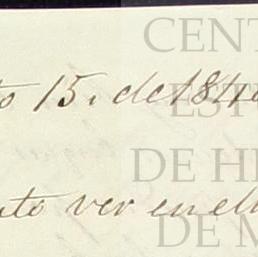 CENT
to 15. de 184
EST
DE HI
ver en el
DE M